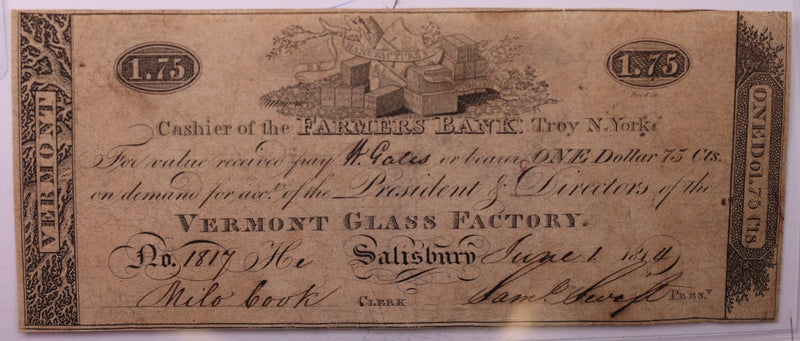 MANUFACTURES
1.75
1.75
Reed Sc.
VERMONT
ONE DOL 75 Cts
Cashier of the FARMERS BANK. Troy N. York.
For value received pay W. Gates or bearer ONE Dollar 75 Cts.
on demand for acco. of the President & Directors of the
VERMONT GLASS FACTORY.
No. 1817 He Salisbury June 1. 1814
Milo Cook CLERK Saml. Swift PREST.